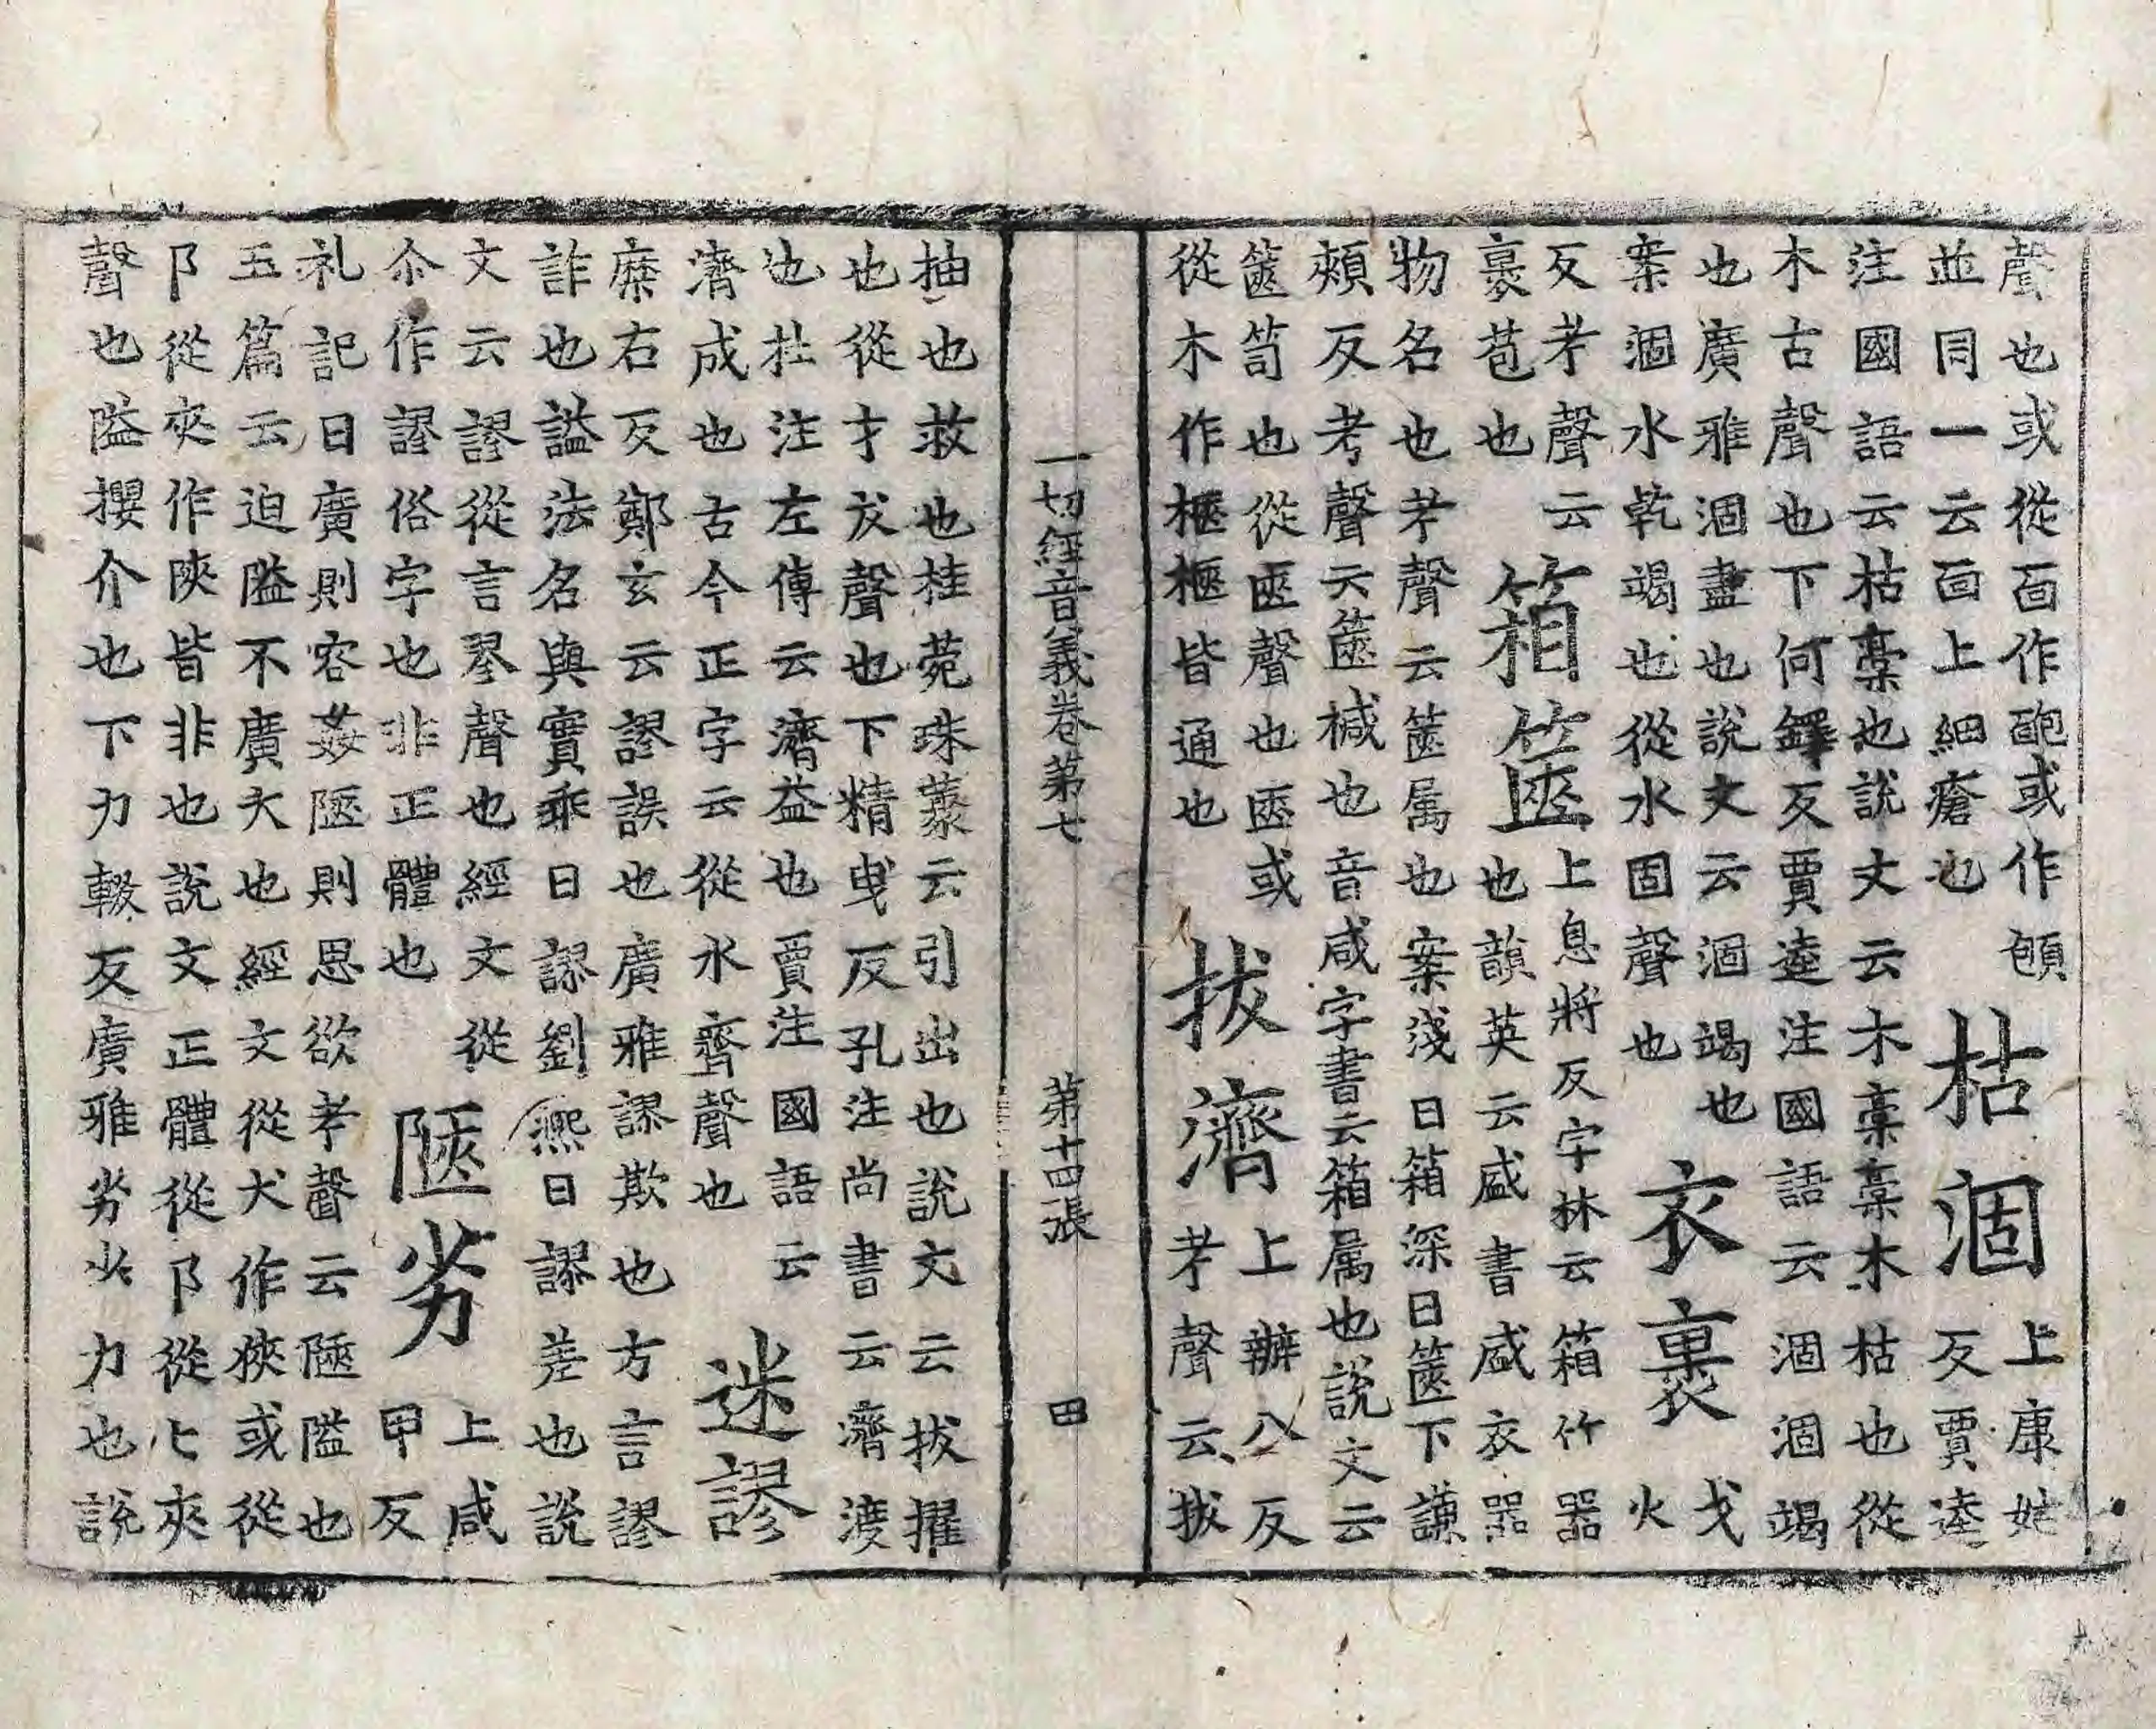 聲也或從面作皰或作
並同一云面上細瘡也
枯涸
上康姑
反賈逵
注國語云枯槀也說文云木槀槀木枯也從
木古聲也下何鐸反賈逵注國語云涸涸竭
也廣雅涸盡也說文云涸竭也
案涸水乾竭也從水固聲也
衣裹
戈
火
反考聲云
裹苞也
箱篋
上息將反字林云箱竹器
也韻英云盛書盛衣器
物名也考聲云篋属也案淺曰箱深曰篋下謙
頰反考聲云篋椷也音咸字書云箱属也說文云
篋笥也從匧聲也匧或
從木作㮌㮌皆通也
拔濟
上辦八反
考聲云拔
一切經音義卷第七 第十四張 田
抽也救也桂菀珠藂云引出也說文云拔擢
也從才犮聲也下精曳反孔注尚書云濟渡
也杜注左傳云濟益也賈注國語云
濟成也古今正字云從水齊聲也
迷謬
糜右反鄭玄云謬誤也廣雅謬欺也方言謬
詐也謚法名與實乖曰謬劉熙曰謬差也說
文云謬從言翏聲也經文從
尒作謬俗字也非正體也
陿劣
上咸
甲反
礼記曰廣則容姦陿則思欲考聲云陿隘也
玉篇云迫隘不廣大也經文從犬作狹或從
阝從夾作陜皆非也說文正體從阝從匚夾
聲也隘攖介也下力輟反廣雅劣少力也說